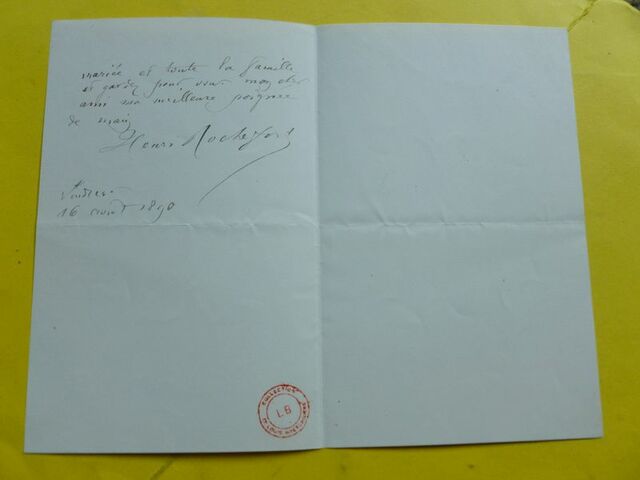 mariée et toute la famille
et gardez pour vous mon cher
ami ma meilleure poignée
de main
Henri Rochefort
Londres
16 août 1890
COLLECTION
LB